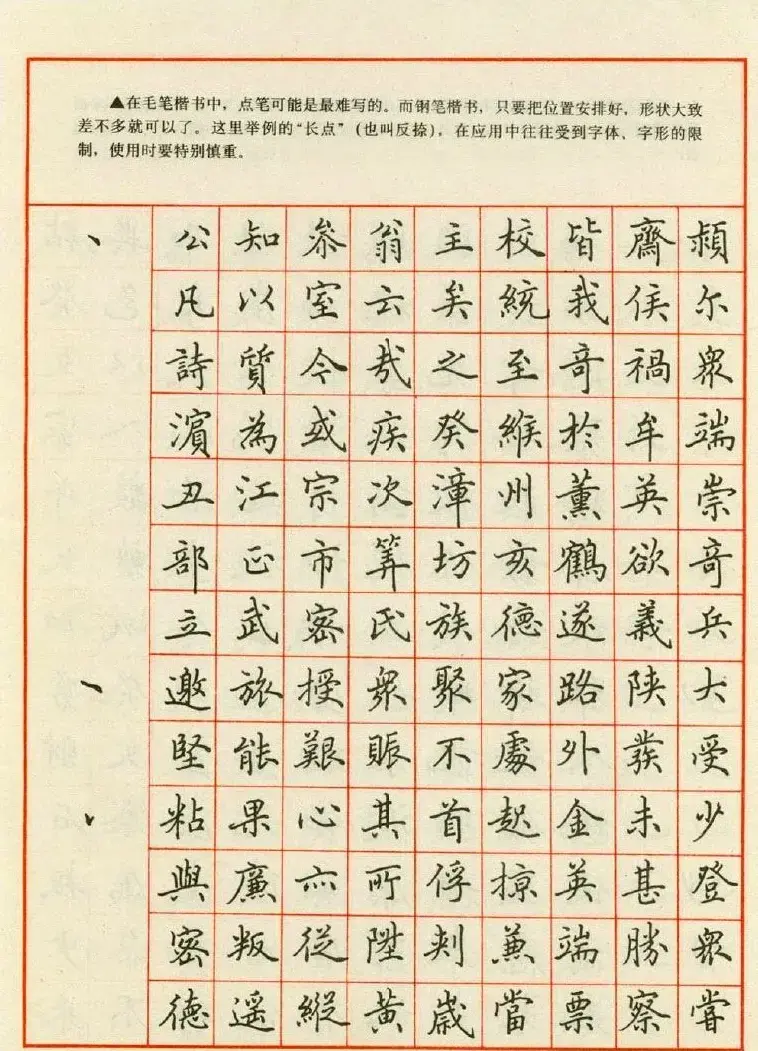 ▲在毛笔楷书中，点笔可能是最难写的。而钢笔楷书，只要把位置安排好，形状大致
差不多就可以了。这里举例的“长点”（也叫反捺），在应用中往往受到字体、字形的限
制，使用时要特别慎重。
公知參翁主校皆齋潁
凡以室云矣統我侯尔
詩質今哉之至奇禍眾
濱為或疾癸緱於牟端
丑江宗次漳州薰英崇
部正市筭坊亥鶴欲奇
立武密氏族德遂義兵
邀旅授眾聚家路陕大
堅能艱賑不處外發受
粘果心其首起金未少
與廉亦所俘掠英甚登
密叛從陞刺兼端勝眾
德遥縱黃歲當票察嘗